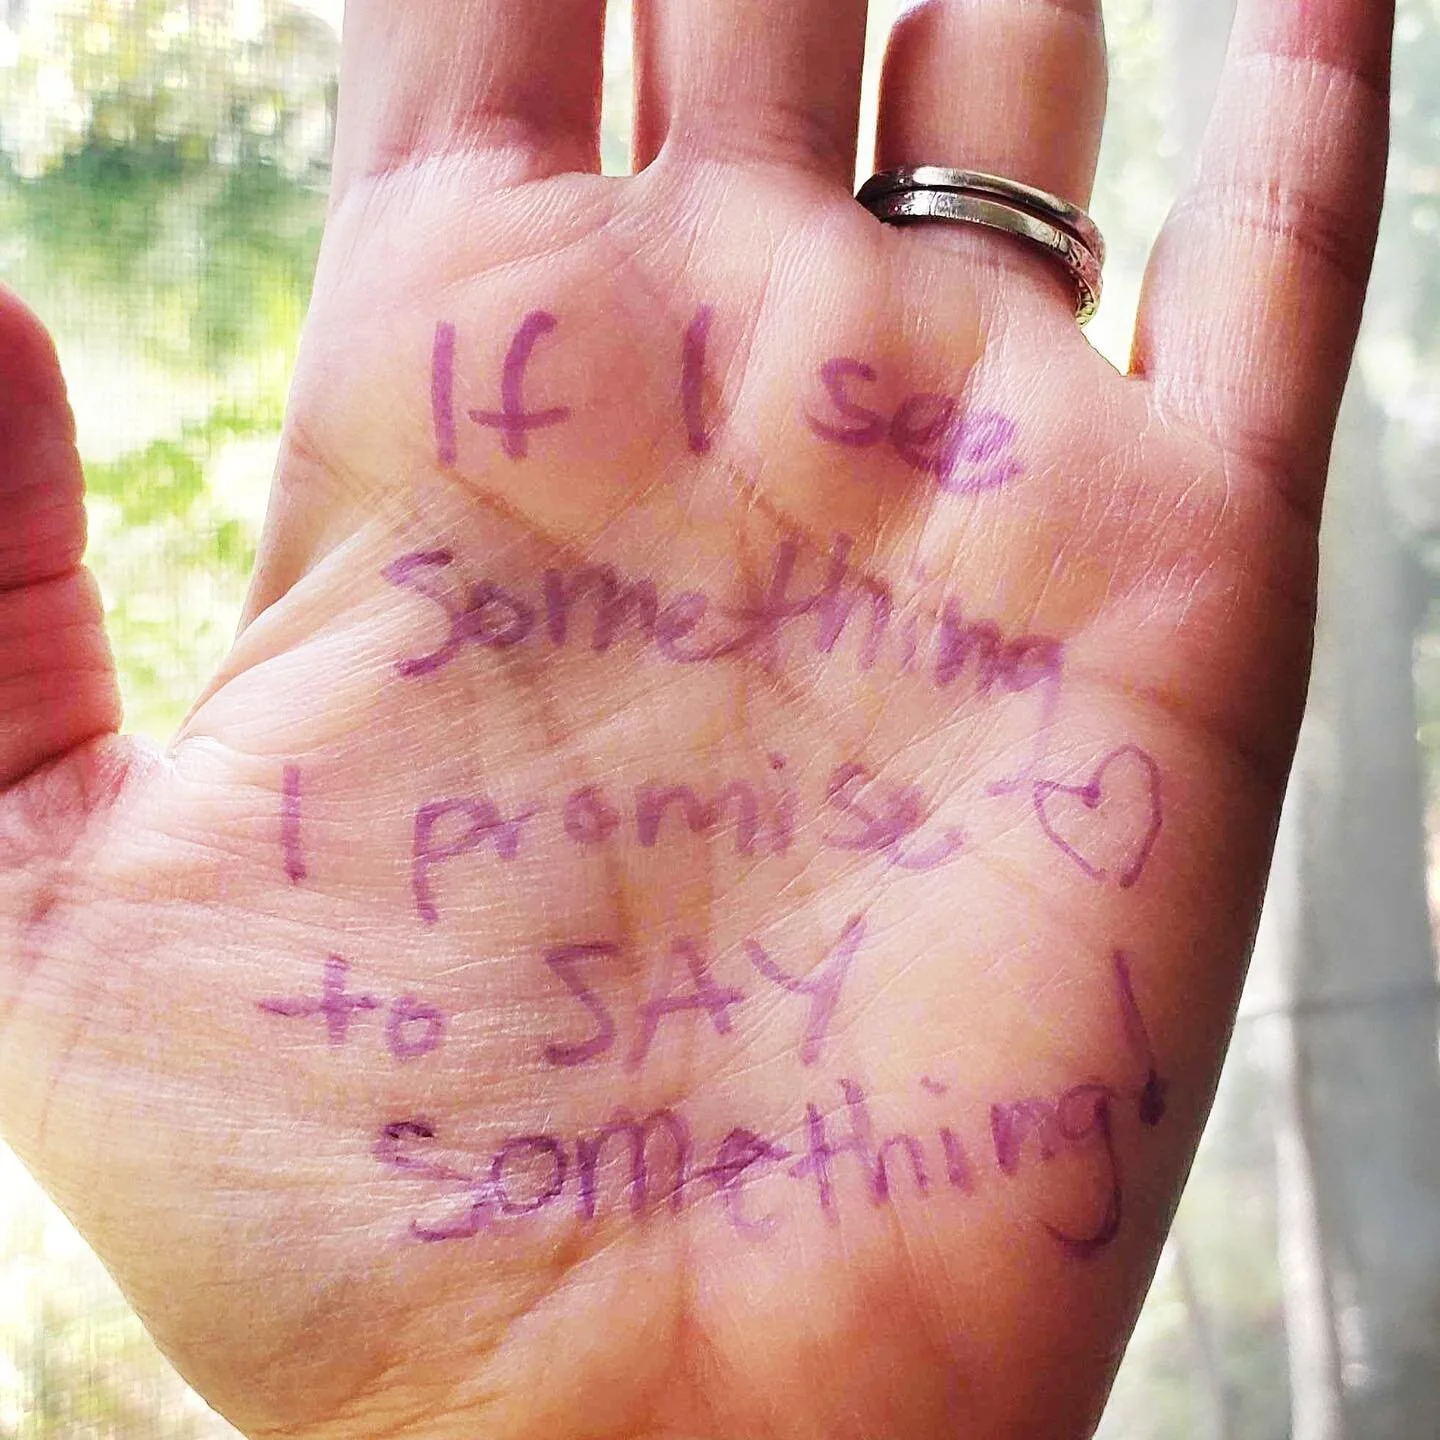 If I see
something
I promise
to SAY
something!